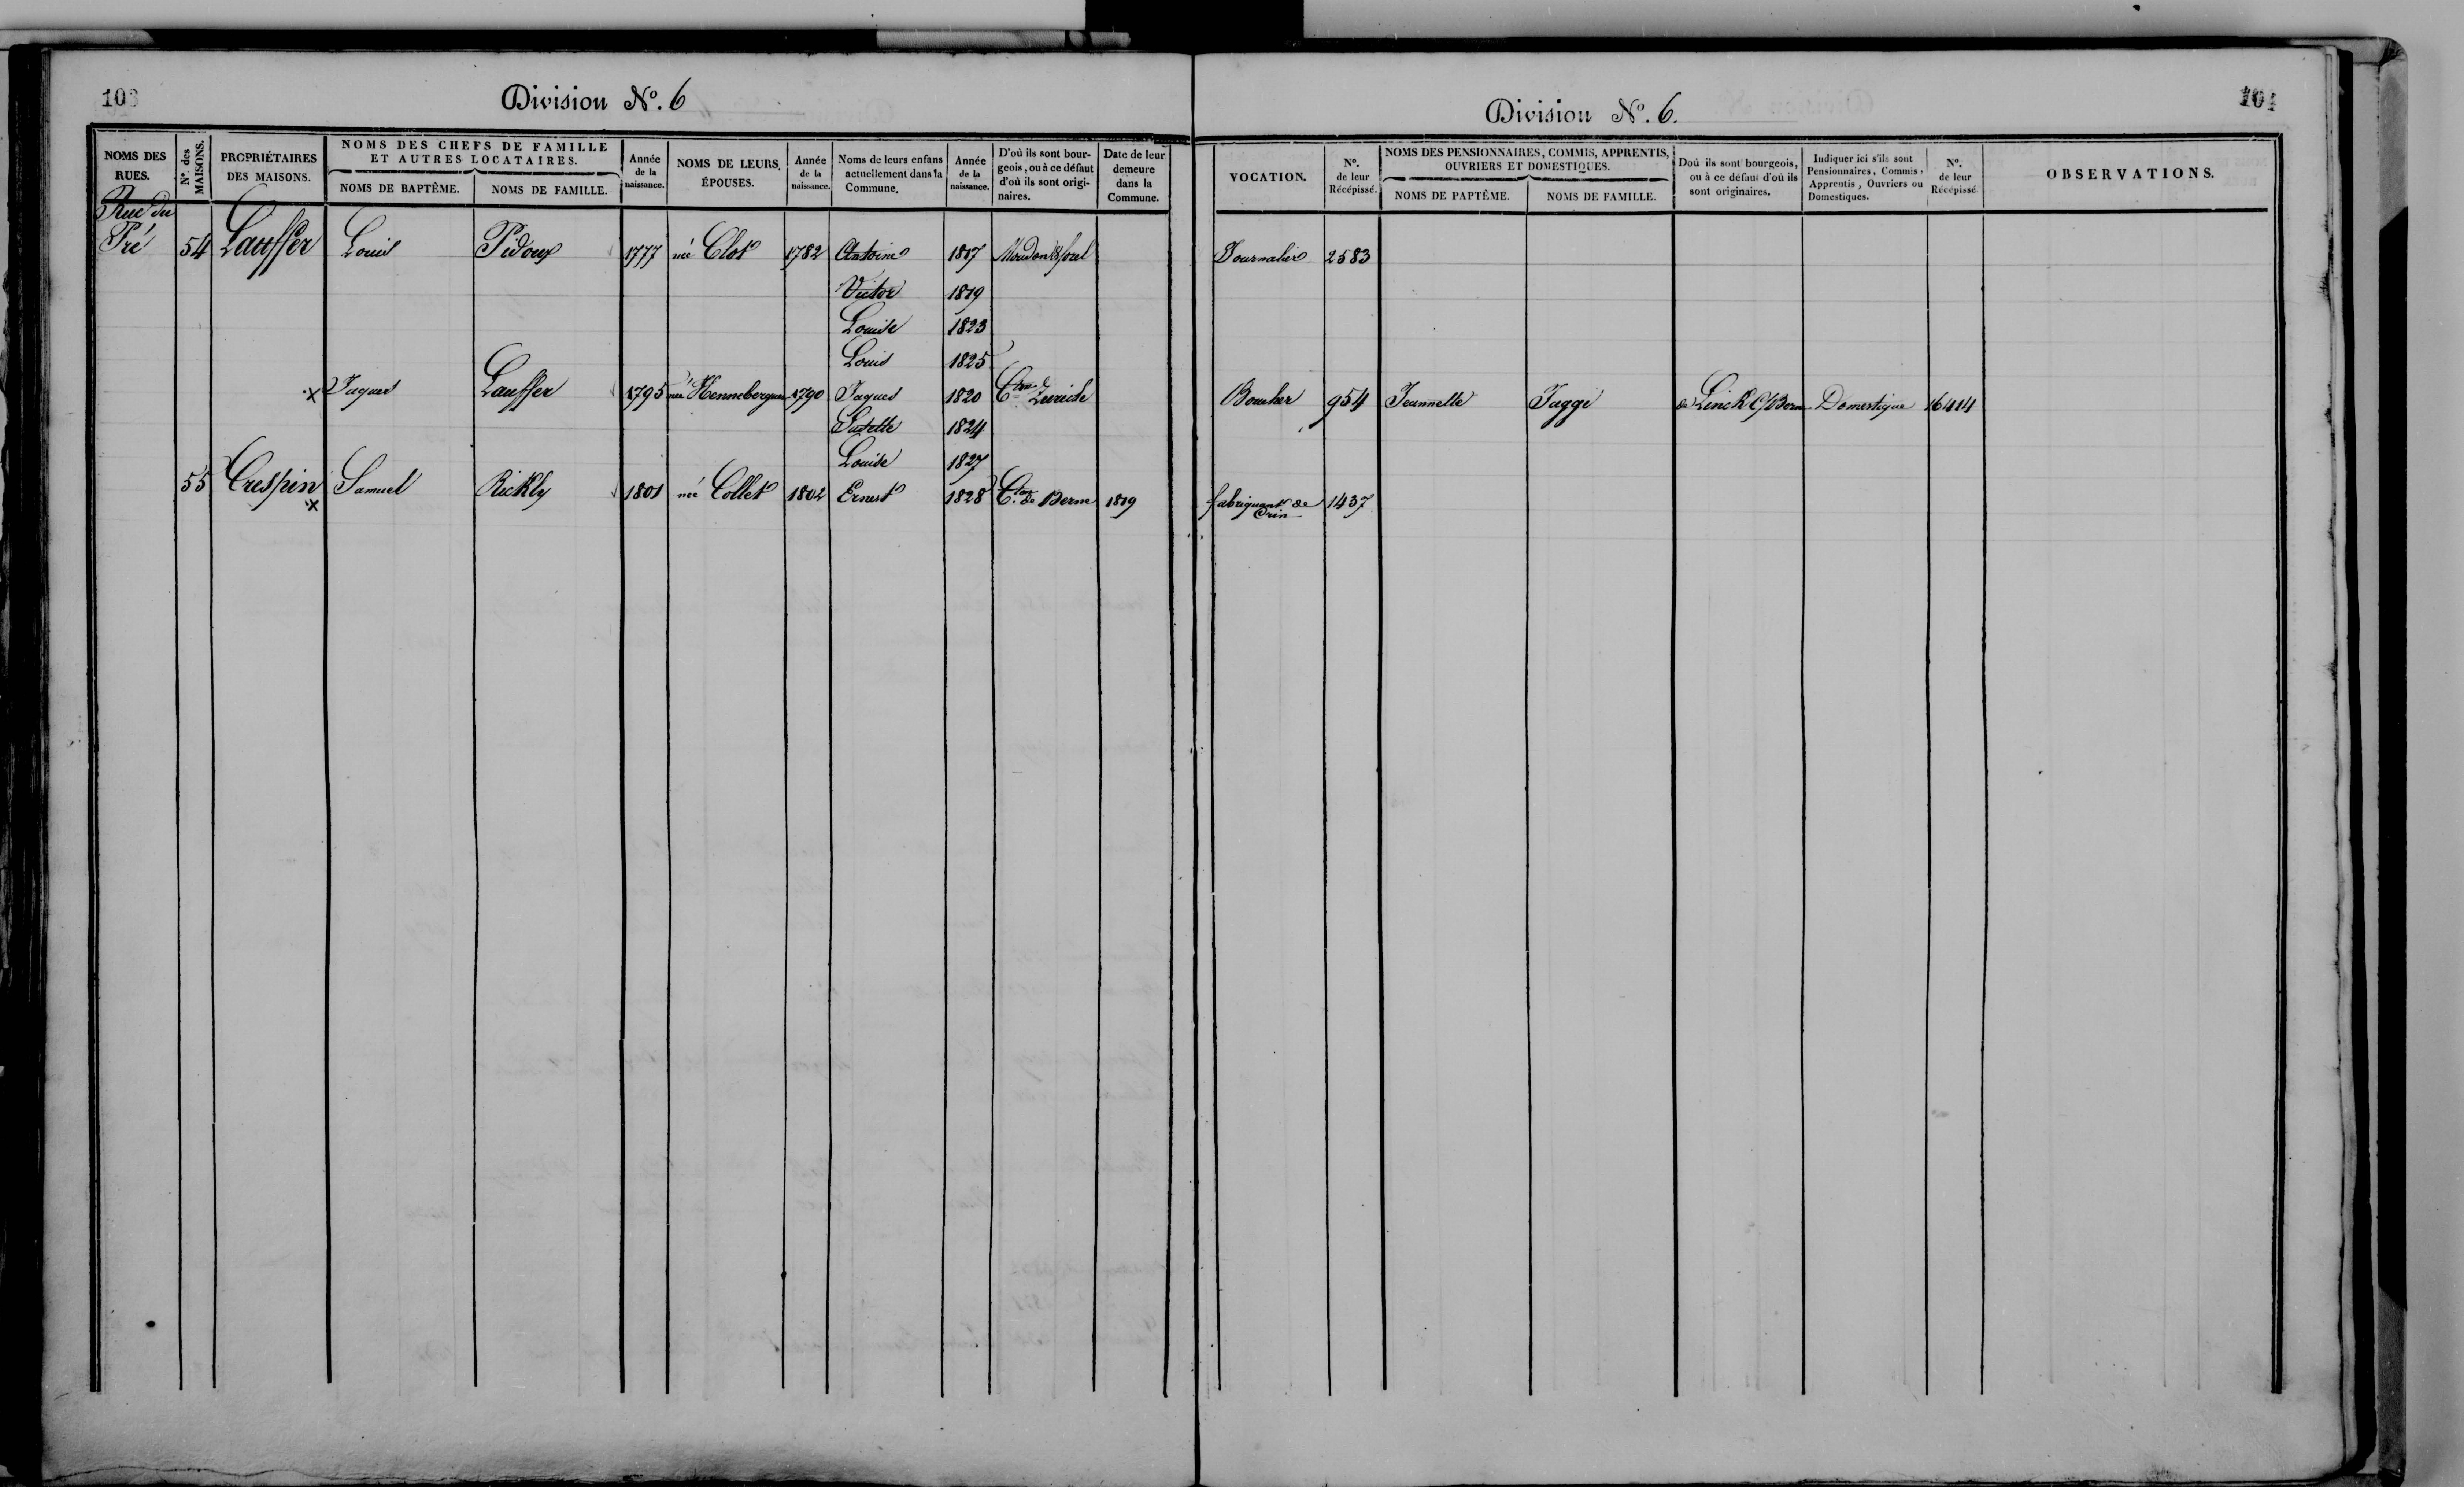 103
Division Nº. 6
NOMS DES RUES.
Nº. des MAISONS.
PROPRIÉTAIRES DES MAISONS.
NOMS DES CHEFS DE FAMILLE ET AUTRES LOCATAIRES.
NOMS DE BAPTÊME.
NOMS DE FAMILLE.
Année de la naissance.
NOMS DE LEURS ÉPOUSES.
Année de la naissance.
Noms de leurs enfans actuellement dans la Commune.
Année de la naissance.
D'où ils sont bourgeois, ou à ce défaut d'où ils sont originaires.
Date de leur demeure dans la Commune.
Rue du
Pré 54 Lauffer Louis Pidoux 1777 née Clot 1782 Antoine 1817 Moudon & forel
Victor 1819
Louise 1823
Louis 1825
x Jaques Lauffer 1795 née Henneberguer 1790 Jaques 1820 Cton de Zurich
Susette 1824
Louise 1827
55 Crespin x Samuel Rickly 1801 née Collet 1802 Ernest 1828 Cton de Berne 1819
104
Division Nº. 6.
VOCATION.
Nº. de leur Récépissé.
NOMS DES PENSIONNAIRES, COMMIS, APPRENTIS, OUVRIERS ET DOMESTIQUES.
NOMS DE PAPTÊME.
NOMS DE FAMILLE.
Doù ils sont bourgeois, ou à ce défaut d'où ils sont originaires.
Indiquer ici s'ils sont Pensionnaires, Commis, Apprentis, Ouvriers ou Domestiques.
Nº. de leur Récépissé.
OBSERVATIONS.
Journalier 2583
Boucher 954 Jeannette Jaggi de Linck C/ Berne Domestique 16414
fabriquant de Crin 1437